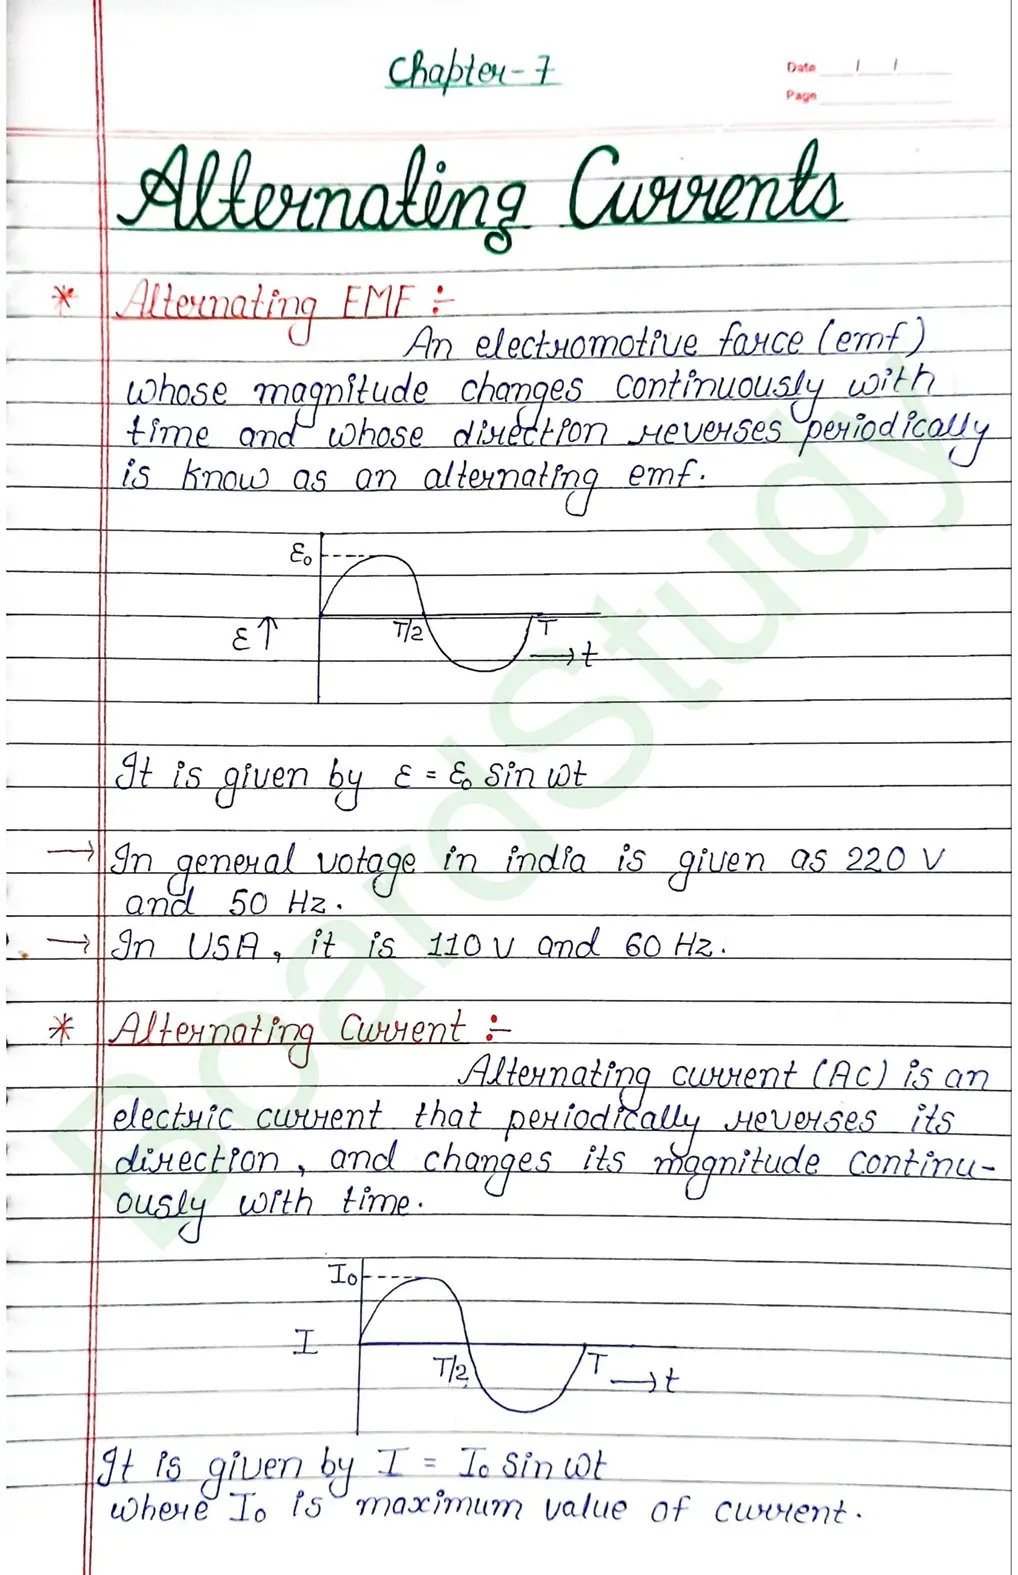 Chapter-7
Date / /
Page
Alternating Currents
* Alternating EMF :-
An electromotive force (emf)
whose magnitude changes continuously with
time and whose direction reverses periodically
is know as an alternating emf.
ε₀
ε↑ T/2 T
→t
It is given by ε = ε₀ sin ωt
→ In general votage in india is given as 220 V
and 50 Hz.
→ In USA, it is 110 V and 60 Hz.
* Alternating Current :-
Alternating current (AC) is an
electric current that periodically reverses its
direction, and changes its magnitude continu-
ously with time.
I₀
I
T/2 T →t
It is given by I = I₀ sin ωt
where I₀ is maximum value of current.
BoardStudy